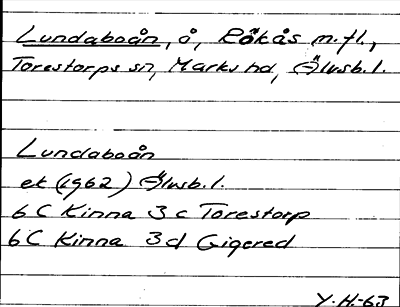 Lundaboån, å, Rökås m.fl.,
Torestorps sn, Marks hd, Älvsb. l.
Lundaboån
ek (1962) Älvsb. l.
6 C Kinna 3 c Torestorp
6 C Kinna 3 d Gigered
Y.H.-63